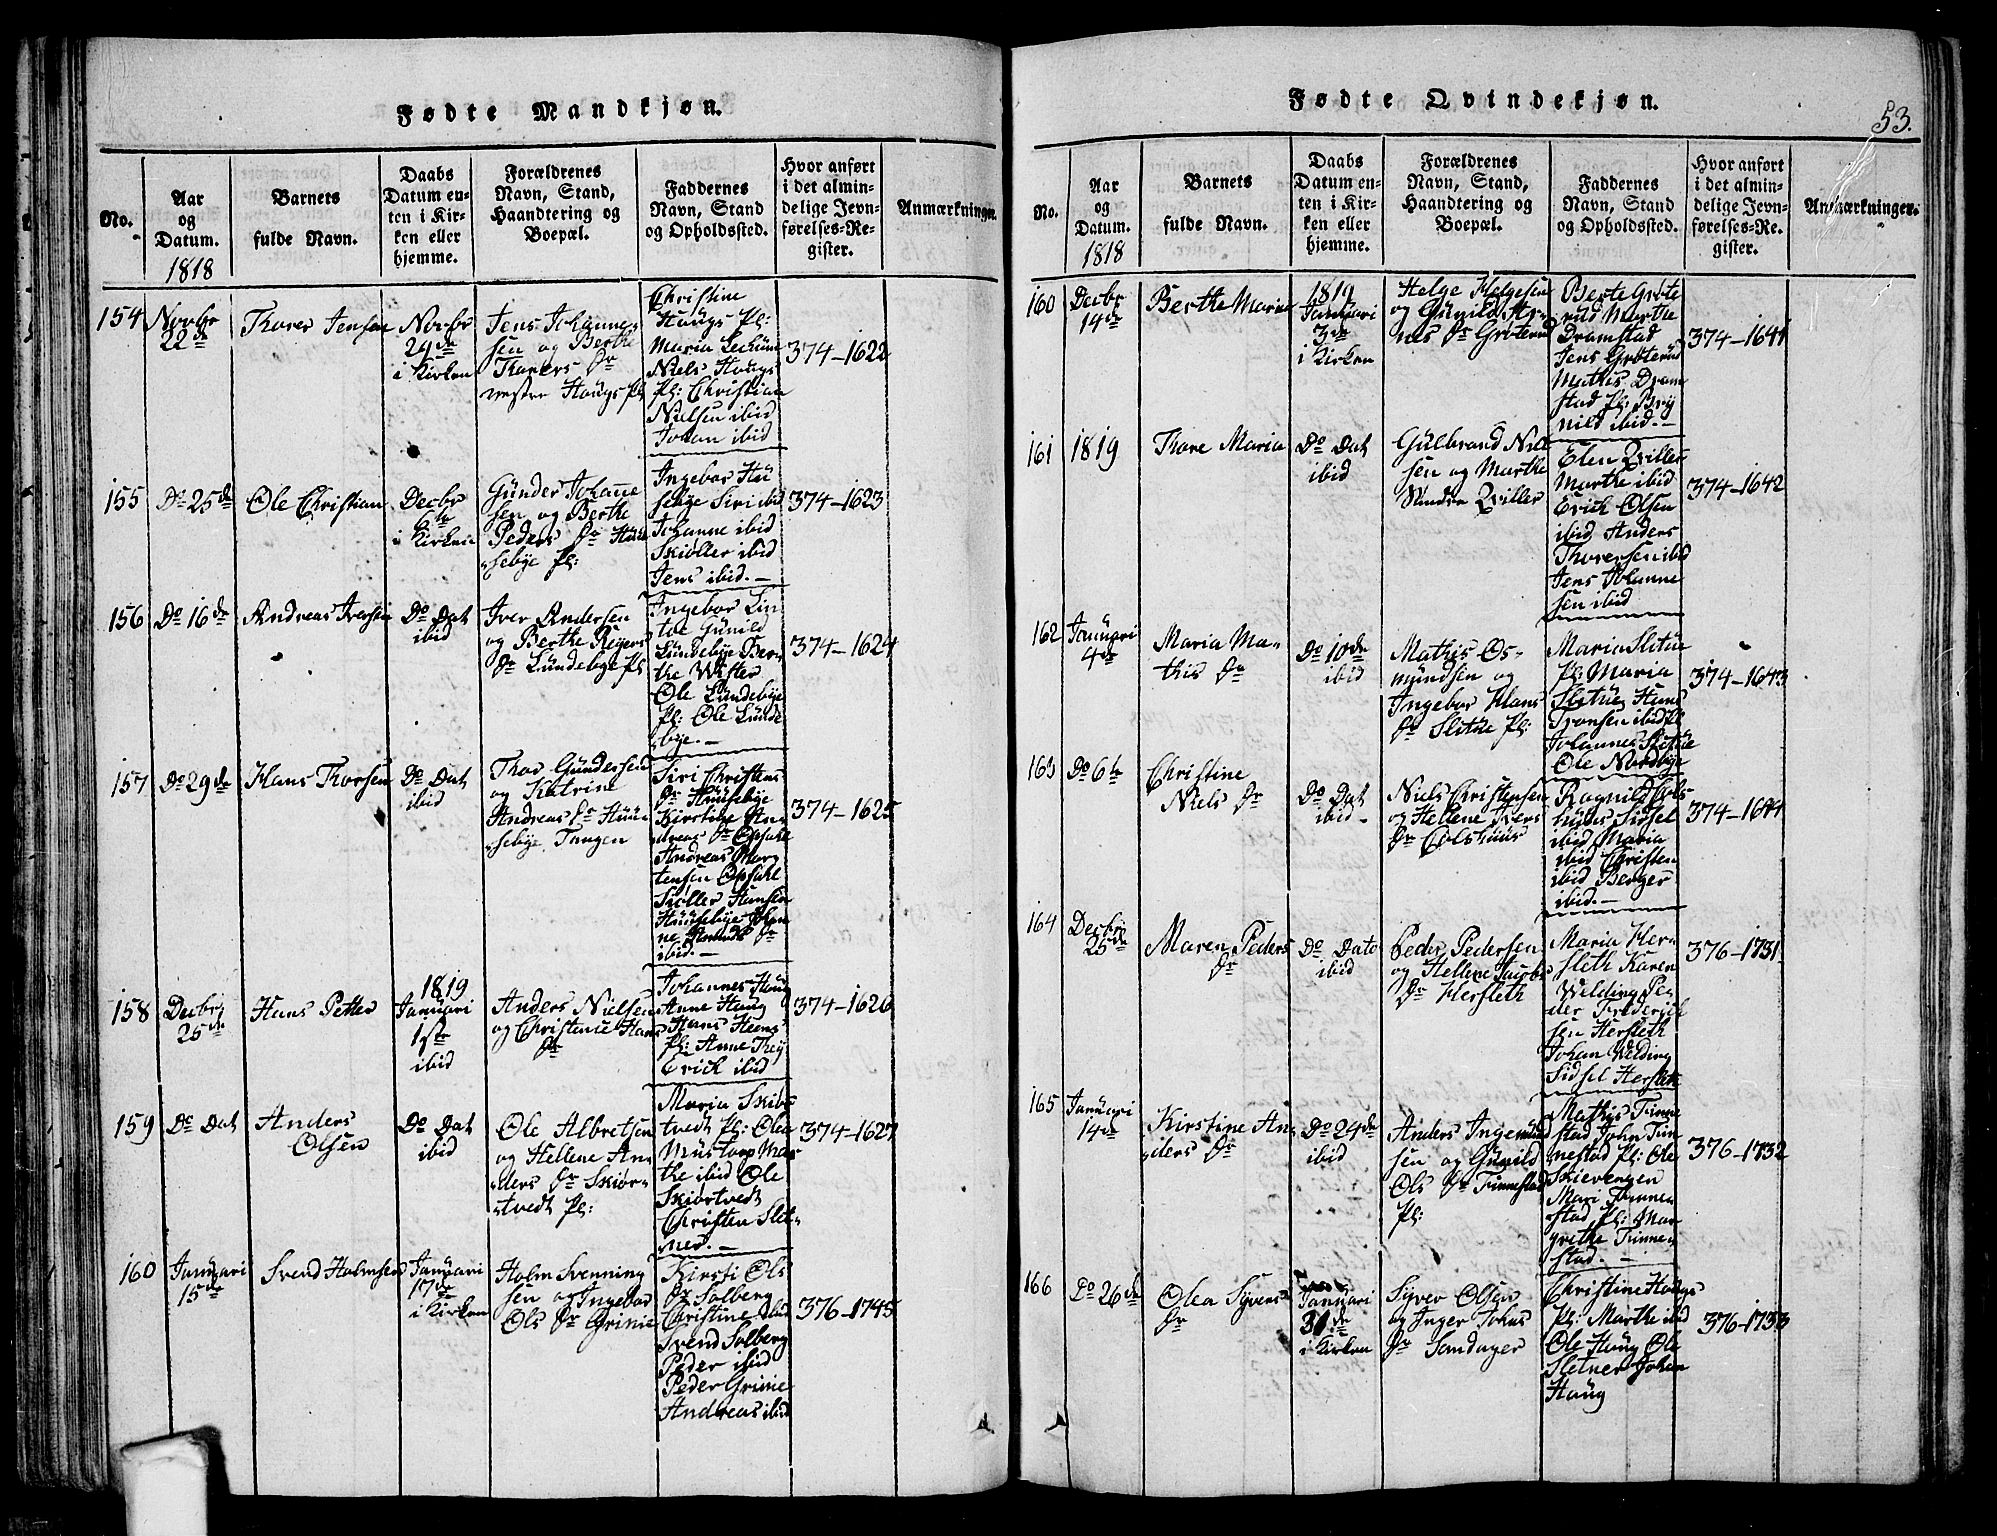 Fødte Mandkjøn.
No.
Aar
og
Datum.
1818
Barnets
fulde Navn.
Daabs
Datum en-
ten i Kir-
ken eller
hjemme.
Forældrenes
Navn, Stand,
Haandtering og
Boepæl.
Faddernes
Navn, Stand
og Opholdssted.
Hvor anført
i det almin-
delige Jevn-
førelses-Re-
gister.
Anmærkninger.
154
Novbr
22de
Thorer Jensen
Novbr
29de
i Kirken
Jens Johanne-
sen og Berthe
Thorers Dr
vestre Haugs Pl
Christine
Haugs Pl:
Maria
Niels Haugs
Pl: Christian
Nielsen ibid
Johan ibid
374-1622
155
Do 25de
Ole Christian
Decbr
6te
i Kirken
Günder Johanne
sen og Berthe
Peders Dr Huu
sebye Pl:
Ingebor Hu
sebye Siri ibid
Johanne ibid
Skiøller ibid
Jens ibid.-
374-1623
156
Do 16de
Andreas Iversen
Do Dat
ibid
Iver Andersen
og Berthe
Dr Lundebye Pl
Ingebor Lin
toe Gunild
Lundebye Ber-
the
Ole Lundebye
Pl: Ole Lunde
bye.-
374-1624
157
Do 29de
Hans Thorsen
Do Dat
ibid
Thor Gundersen
og Katrine
Andreas Dr Huu-
sebye Tangen
Siri Christens
Dr Huusebye
Kirstine An-
dreas Dr Opsahl
Andreas Mor
tensen Opsahl
Siøller Hansen
Huusebye Johan
ne Amunds Dr
ibid.-
374-1625
158
Decbr
25de
Hans Petter
1819
Januari
1ste
ibid
Anders Nielsen
og Christenie Hans
Dr
Johannes Haug
Anne Haug
Hans
Pl: Anne
Erich ibid
374-1626
159
Do Dat
Anders
Olsen
Do Dat
ibid
Ole Albretsen
og Hellene An-
ders Dr Skiør-
tvedt Pl:
Maria Skiør
tvedt Pl: Olea
Mustorp Mar
the ibid Ole
Skiørtvedt
Christen Slet-
ner.-
374-1627
160
Januari
15de
Svend Holmsen
Januari
17de
i Kirken
Holm Svenning
sen og Ingebor
Ols Dr Grinie
Kirsti Ols
Dr Solberg
Christine ibid
Svend Solberg
Peder ibid
Peder Grinie
Andreas ibid
376-1745
Fødte Qvindekjøn.
53.
No.
Aar
og
Datum.
1818
Barnets
fulde Navn.
Daabs
Datum en-
ten i Kir-
ken eller
hjemme.
Forældrenes
Navn, Stand,
Haandtering og
Boepæl.
Faddernes
Navn, Stand
og Opholdssted.
Hvor anført
i det almin-
delige Jevn-
førelses-Re-
gister.
Anmærkninger.
160
Decbr
14de
Berthe Maria
1819
Januari
3de
i Kirken
Helge Helgesen
og Gunild Ar-
nes Dr Grøterud
Berte Grøte
rud Marthe
Dramstad
Jens Grøterud
Mathis Dram
stad Pl:
ibid.-
374-1641
161
1819
Thore Maria
Do Dat
ibid
Gulbrand Niel
sen og Marthe
Elen
Marthe ibid
Erich Olsen
ibid Anders
Thoresen ibid
Jens Johanne
sen ibid
374-1642
162
Januari
4de
Maria Ma-
this Dr
Do 10de
ibid
Mathis Os-
mundsen og
Ingebor Hans
Dr Slitue Pl:
Maria Slitue
Pl: Maria
Slitue Hans
Tronsen ibid Pl
Johannes Slitue
Ole Nordbye
374-1643
163
Do 6te
Christine
Niels Dr
Do Dat
ibid-
Niels Christensen
og Hellene Ivers
Dr Colshuus
Ragnild Cols-
huus Sidsel
ibid Maria
ibid Christen
ibid Berger
ibid.-
374-1644
164
Decbr
25de
Maren Peders
Dr
Do Dato
ibid
Peder Pedersen
og Hellene Jacobs
Dr Hersleth
Maria Her-
sleth Karen
Welding Pe-
der Frederich
sen Hersleth
Johan Welding
Sidsel Hersleth
376-1731
165
Januari
14de
Kirstine An-
ders Dr
Do 24de
ibid
Anders Ingemund
sen og Gunild
Ols Dr Finnestad
Pl:
Mathis Finne
stad John Fin
nestad Pl: Ole
Skievengen
Mari Finne-
stad Pl: Mar
grethe Finne-
stad.-
376-1732
166
Do 26de
Olea Syvers
Dr
Januari
31de
i Kirken
Syver Olsen
og Inger Johns
Dr Sandager
Christine Haugs
Pl: Marthe ibid
Ole Haug Ole
Sletner Johan
Haug
376-1733